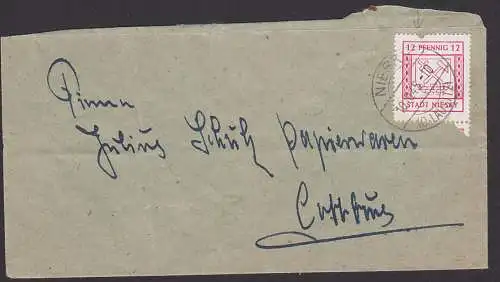 12 PFENNIG 12
STADT NIESKY
Firma
Julius Schulz Papierwaren
Cottbus